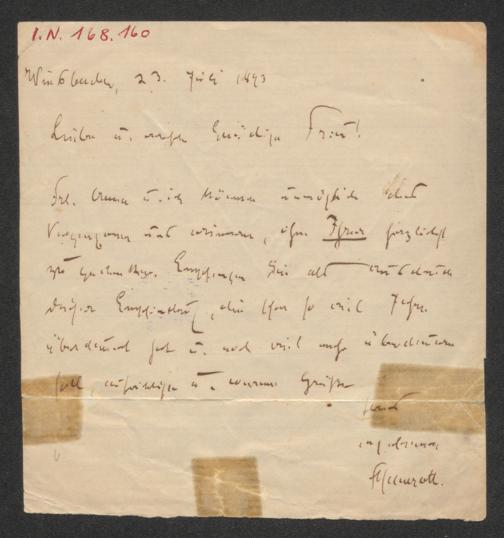 I.N. 168.160
Wiesbaden, 23. Juli 1893
Liebe u. verehrte Gnädige Frau!
Frl. Anna u. ich können unmöglich
Vergangenen uns erinnern, ohne Ihrer herzlichst
zu gedenken. Empfangen Sie als Ausdruck
dieser Empfindung, die schon so viel Jahre
überdauert hat u. noch viel mehr überdauern
soll, aufrichtige u. warme Grüße
Ihres
ergebenen